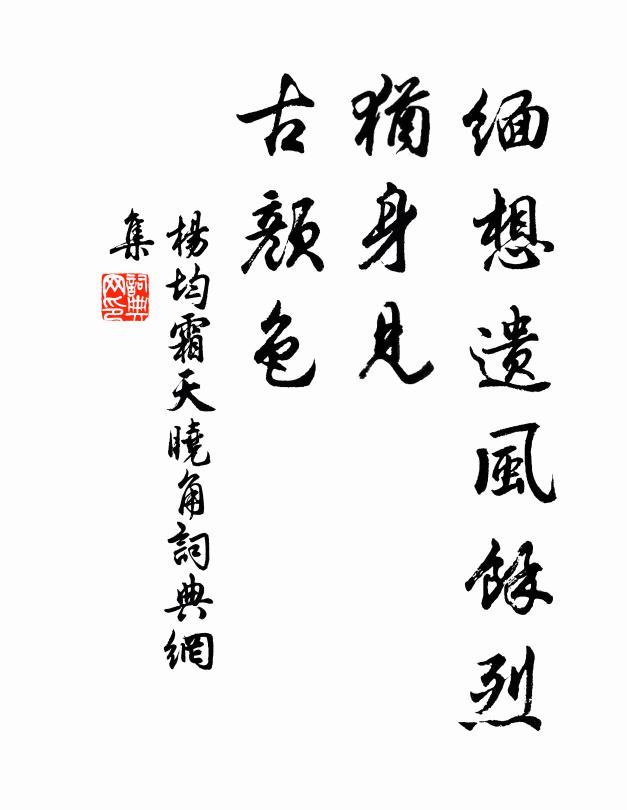 緬想遺風餘烈
猶身見
古顏色
楊均霜天曉角詞典網
集
詞典网印